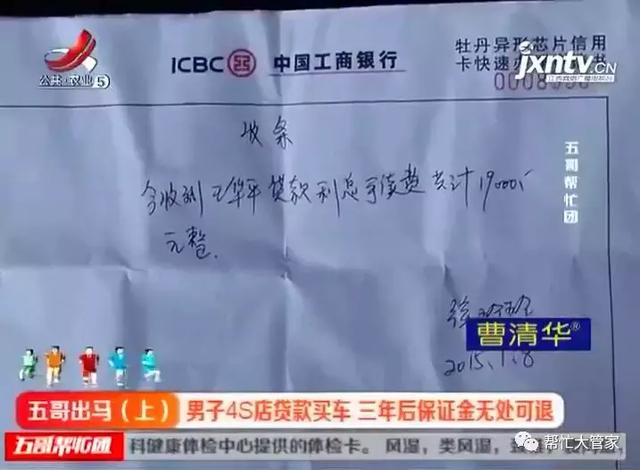 公共·农业⑤
ICBC 中国工商银行
牡丹异形芯片信用
卡快速
jxntv.CN
收条
今收到王华平贷款利息手续费共计19000
元整。
五哥帮忙团
曹清华®
2015.1.8
五哥出马(上) 男子4S店贷款买车 三年后保证金无处可退
五哥帮忙团
科健康体检中心提供的体检卡。 风湿,类风湿,
帮忙大管家